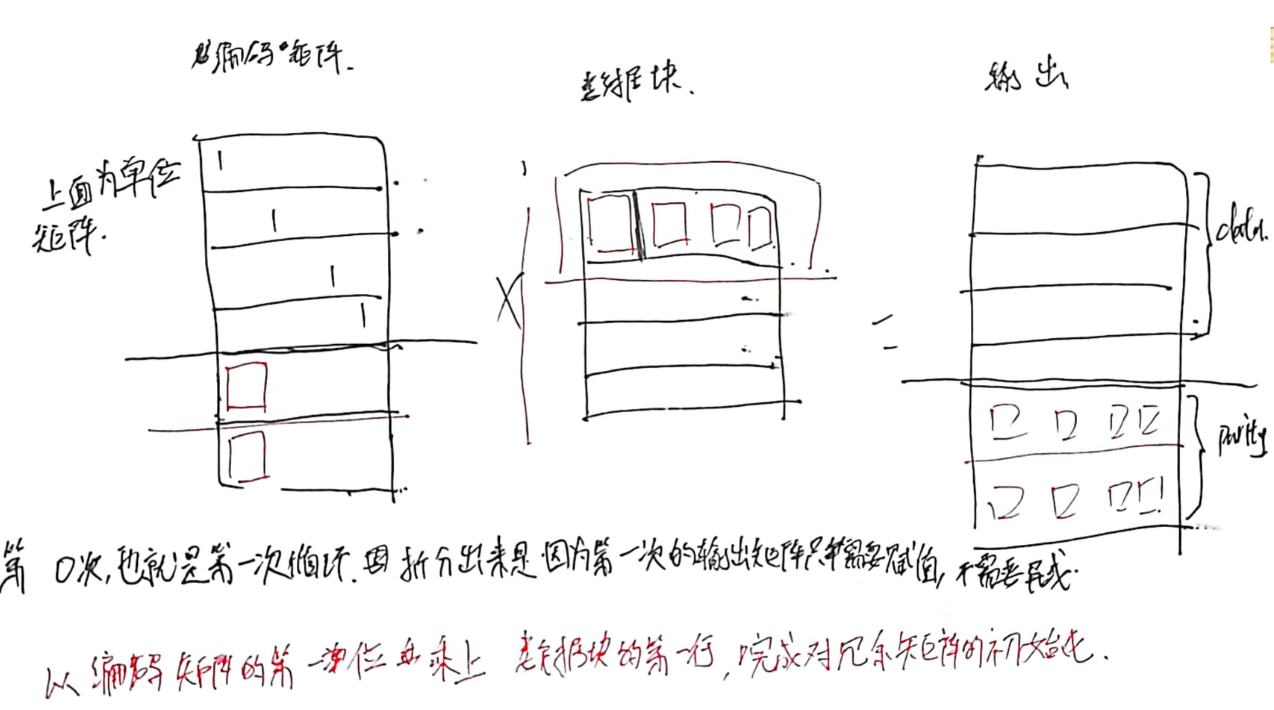 编码矩阵.
数据块.
输出
上面为单位
矩阵.
1
1
1
1
X
=
data.
parity
第0次,也就是第一次循环.拆分出来是因为第一次的输出矩阵只需要赋值,不需要异或.
以编码矩阵的第一 位 乘上 数据块的第一行,完成对冗余矩阵的初始化.